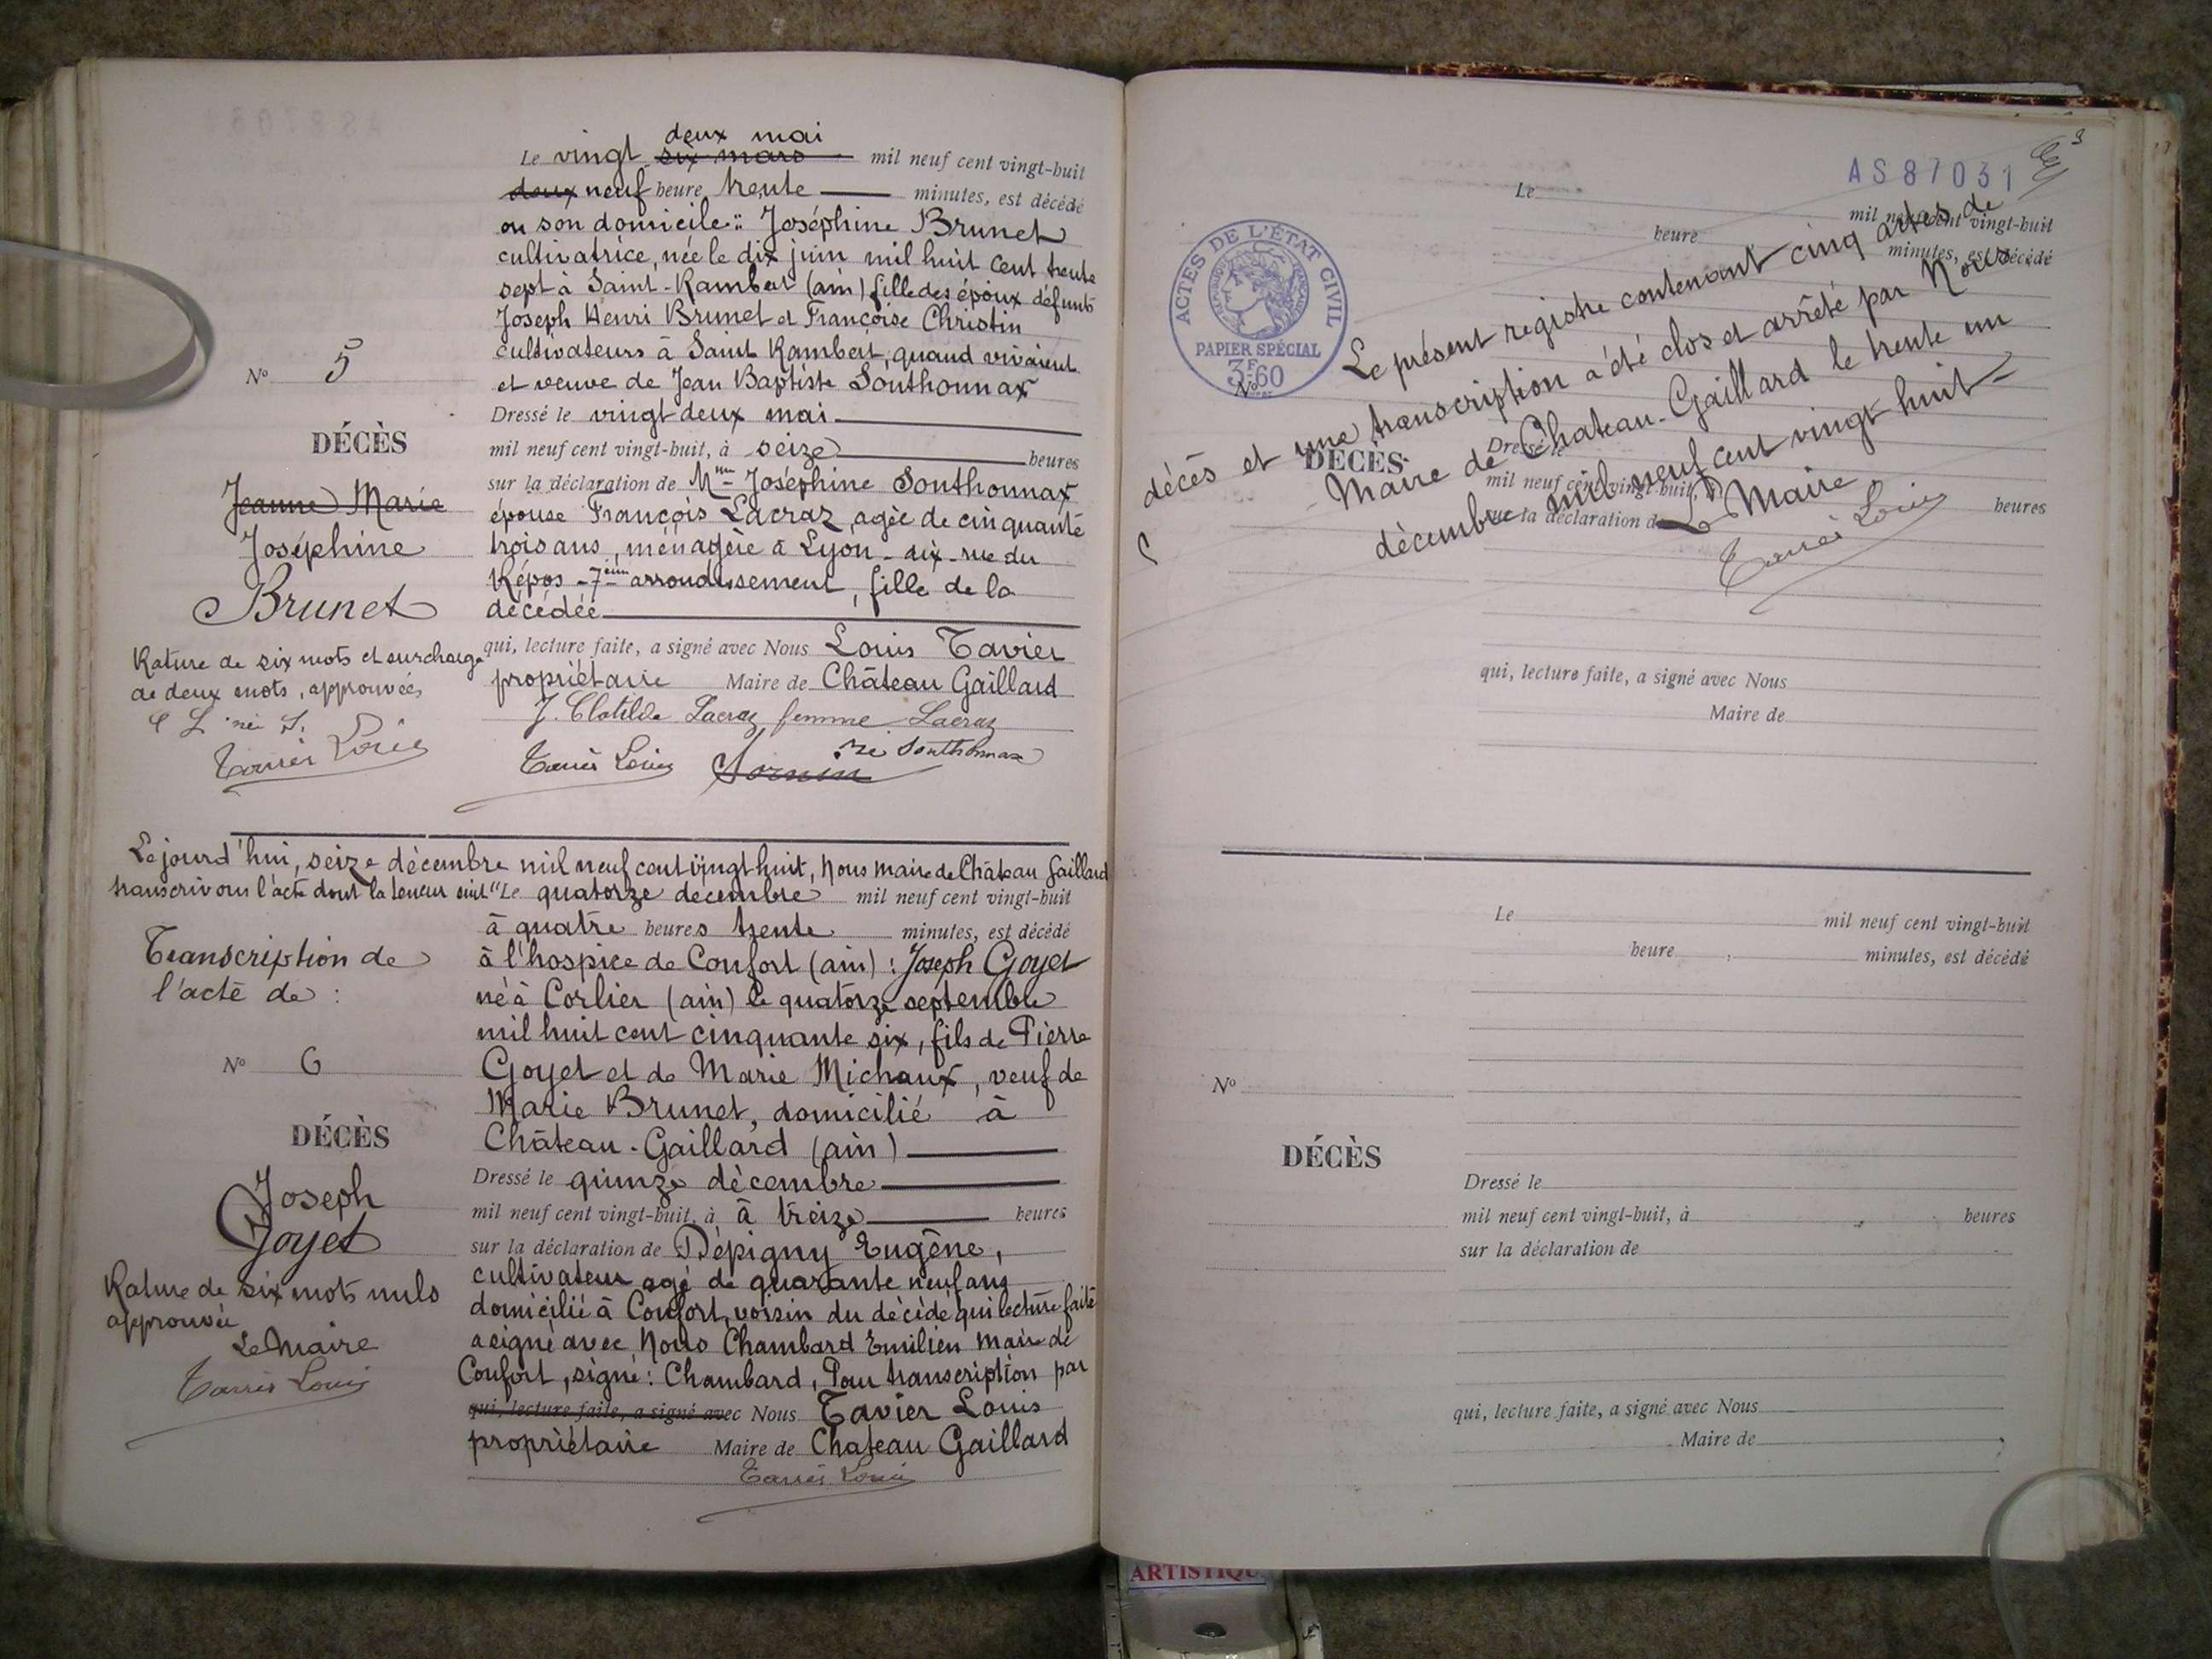 deux mai
Le vingt six mars mil neuf cent vingt-huit
deux neuf heure trente minutes, est décédé
en son domicile : Joséphine Brunet
cultivatrice, née le dix juin mil huit cent trente
sept à Saint-Rambert (ain) fille des époux défunts
Joseph Henri Brunet et Françoise Christin
cultivateurs à Saint Rambert, quand vivaient
et veuve de Jean Baptiste Southonnax
Dressé le vingt deux mai
mil neuf cent vingt-huit, à seize heures
sur la déclaration de Mme Joséphine Southonnax
épouse François Lacraz, agée de cinquante
trois ans, ménagère à Lyon - dix - rue du
Répos - 7ième arrondissement, fille de la
décédée
qui, lecture faite, a signé avec Nous Louis Tavier
propriétaire Maire de Château Gaillard
J. Clotilde Lacraz femme Lacraz
née Southonnax
Tavier Louis
No 5
DÉCÈS
Jeanne Marie
Joséphine
Brunet
Rature de six mots et surcharge
de deux mots, approuvées
Tavier Louis
Le jourd'hui, seize décembre mil neuf cent vingt huit, Nous maire de Château Gaillard
transcrivons l'acte dont la teneur suit "Le quatorze decembre mil neuf cent vingt-huit
à quatre heures trente minutes, est décédé
à l'hospice de Confort (ain) : Joseph Goyet
né à Corlier (ain) le quatorze septembre
mil huit cent cinquante six, fils de Pierre
Goyet et de Marie Michaux, veuf de
Marie Brunet, domicilié à
Château-Gaillard (ain)
Dressé le quinze décembre
mil neuf cent vingt-huit, à à treize heures
sur la déclaration de Dépigny Eugène,
cultivateur agé de quarante neuf ans
domicilié à Confort, voisin du décédé qui lecture faite
a signé avec Nous Chambard Emilien Maire de
Confort, signé : Chambard, Pour transcription par
qui, lecture faite, a signé avec Nous Tavier Louis
propriétaire Maire de Chateau Gaillard
Tavier Louis
Transcription de
l'acte de :
No 6
DÉCÈS
Joseph
Goyet
Rature de six mots nuls
approuvée
Le Maire
Tavier Louis
AS87031
3
ACTES DE L'ÉTAT CIVIL
PAPIER SPÉCIAL
3F60
Le mil neuf cent vingt-huit
heure minutes, est décédé
Le présent registre contenant cinq actes de
décès et une transcription a été clos et arrêté par Nous
Maire de Chateau-Gaillard le trente un
décembre mil neuf cent vingt huit
Le Maire
Tavier Louis
No
DÉCÈS
Dressé le
mil neuf cent vingt-huit, à heures
sur la déclaration de
qui, lecture faite, a signé avec Nous
Maire de
Le mil neuf cent vingt-huit
heure minutes, est décédé
No
DÉCÈS
Dressé le
mil neuf cent vingt-huit, à heures
sur la déclaration de
qui, lecture faite, a signé avec Nous
Maire de